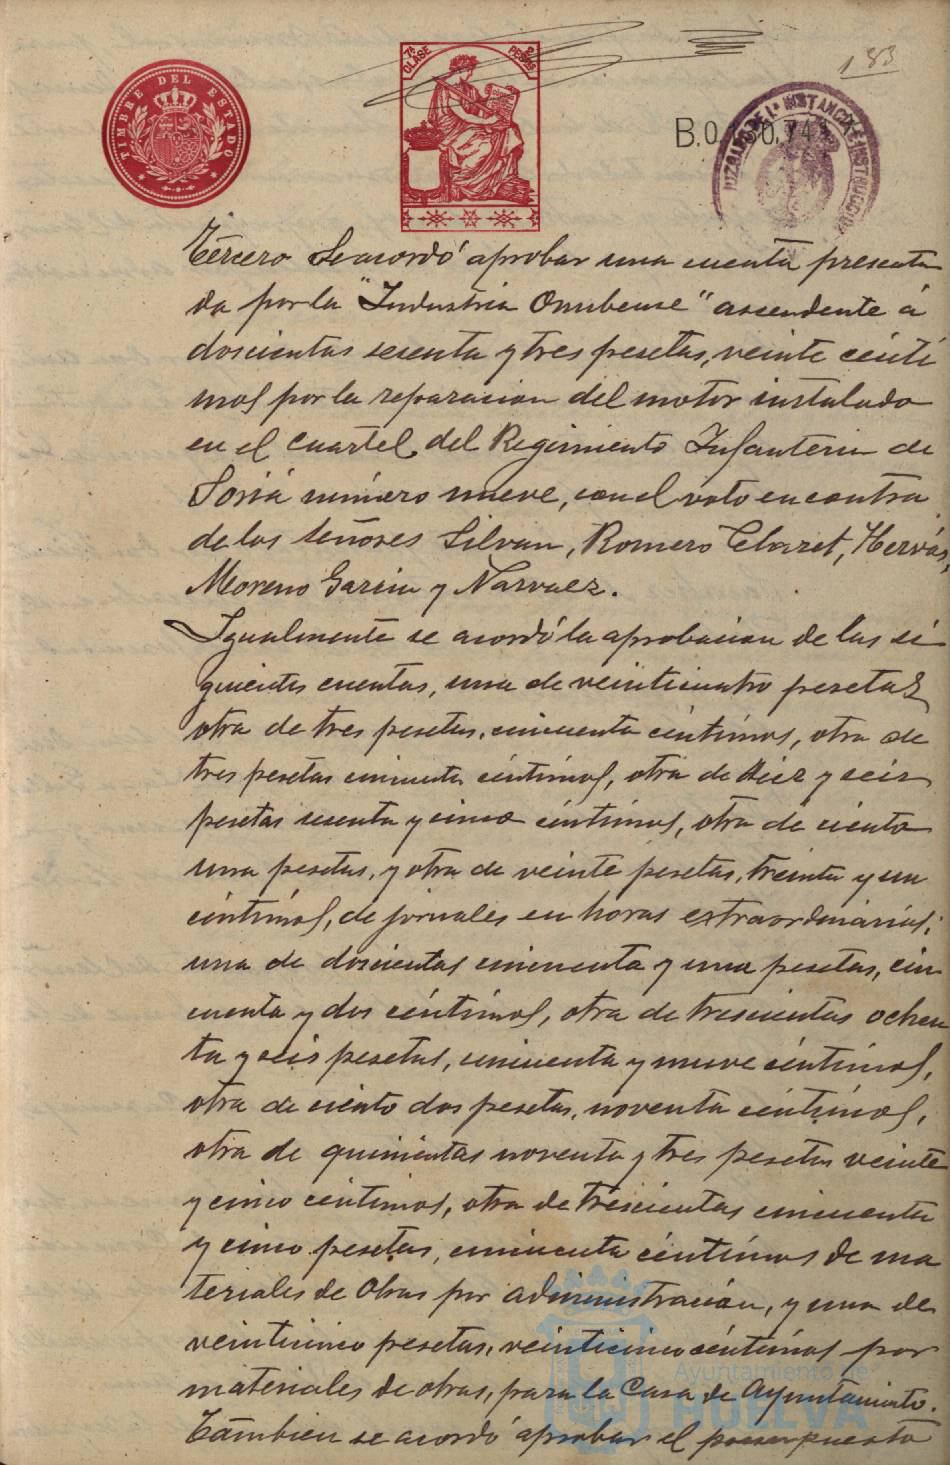 183
TIMBRE DEL ESTADO
7ª CLASE
PESETAS
B.0
JUZGADO DE 1ª INSTANCIA E INSTRUCCION
Tercero Se acordó aprobar una cuenta presenta
da por la "Industria Onubense" ascendente á
doscientas sesenta y tres pesetas, veinte cénti
mos por la reparacion del motor instalado
en el cuartel del Regimiento Infanteria de
Soria número nueve, con el voto en contra
de los señores Silvan, Romero Claret, Hervás,
Moreno Garcia y Narvaez.
Igualmente se acordó la aprobacion de las si
guientes cuentas, una de veinticuatro pesetas
otra de tres pesetas, cincuenta céntimos, otra de
tres pesetas cincuenta céntimos, otra de diez y seis
pesetas sesenta y cinco céntimos, otra de ciento
una pesetas, y otra de veinte pesetas, treinta y un
céntimos, de jornales en horas extraordinarias;
una de doscientas cincuenta y una pesetas, cin
cuenta y dos céntimos, otra de trescientas ochen
ta y seis pesetas, cincuenta y nueve céntimos,
otra de ciento dos pesetas, noventa céntimos,
otra de quinientas noventa y tres pesetas veinte
y cinco centimos, otra de trescientas cincuenta
y cinco pesetas, cincuenta céntimos de ma
teriales de Obras por administración, y una de
veinticinco pesetas, veinticinco céntimos por
materiales de obras, para la Casa de Ayuntamiento.
Tambien se acordó aprobar el presupuesto
Ayuntamiento de
HUELVA